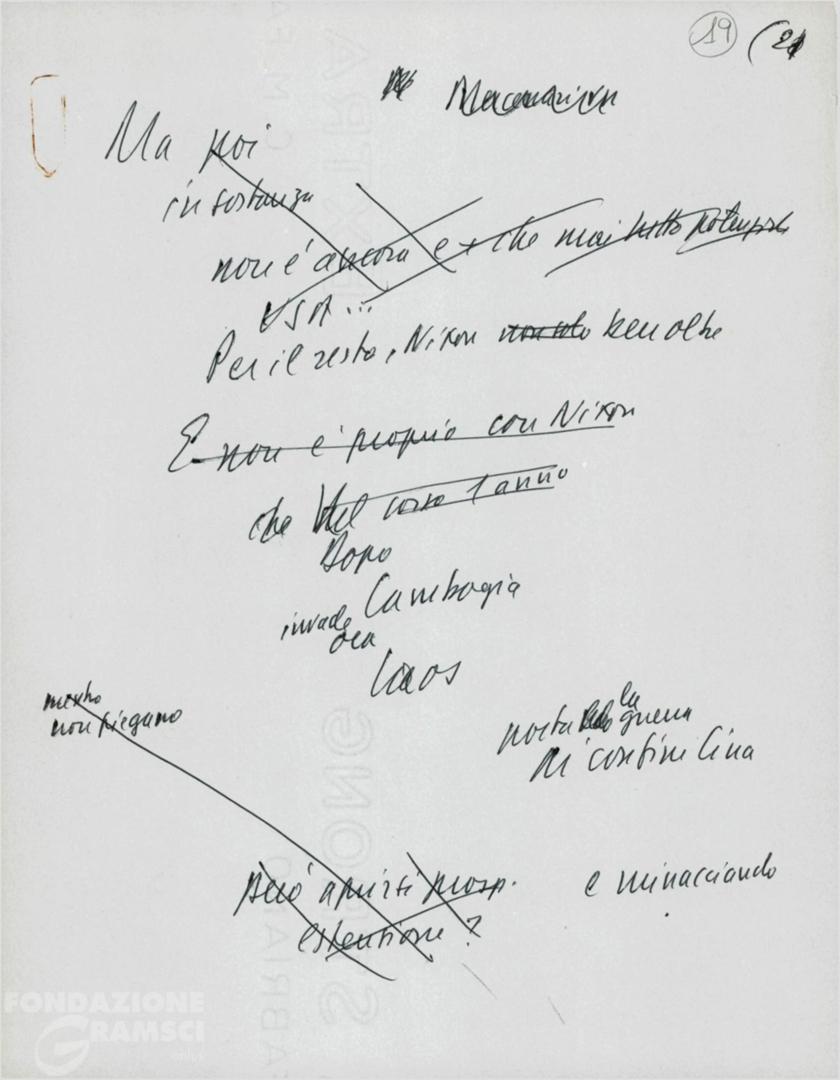 19 (21
Ma poi
in sostanza
non è ancora e + che mai tutto
USA...
Per il resto, Nixon non solo ben oltre
E non è proprio con Nixon
che Nel corso 1 anno
Dopo
invade Cambogia
ora
Laos
mentre
non piegano
porta la guerra
ai confini Cina
Però aprirsi prosp.
estensione?
e minacciando
FONDAZIONE
GRAMSCI